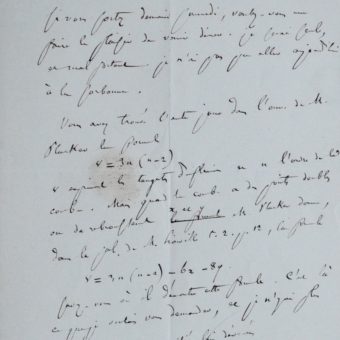 si vous partez demain samedi, voulez-vous me
faire le plaisir de venir dîner. je serai seul,
je n'ai pas pu aller aujourd'hui
à la Sorbonne.
Vous avez trouvé l'autre jour dans l'ouv. de M.
Plucker la formule
v = 3n(n-2)
v exprimant les tangentes d'inflexion et n l'ordre de la
courbe. Mais quand la courbe a des points doubles
ou de rebroussement x et y M. Plucker donne,
dans le jal. de M. Liouville t. 2. p. 12, la formule
v = 3n(n-2) - 6x - 8y.
savez-vous où il démontre cette formule. C'est là
ce que je voulais vous demander, et je n'ai plus